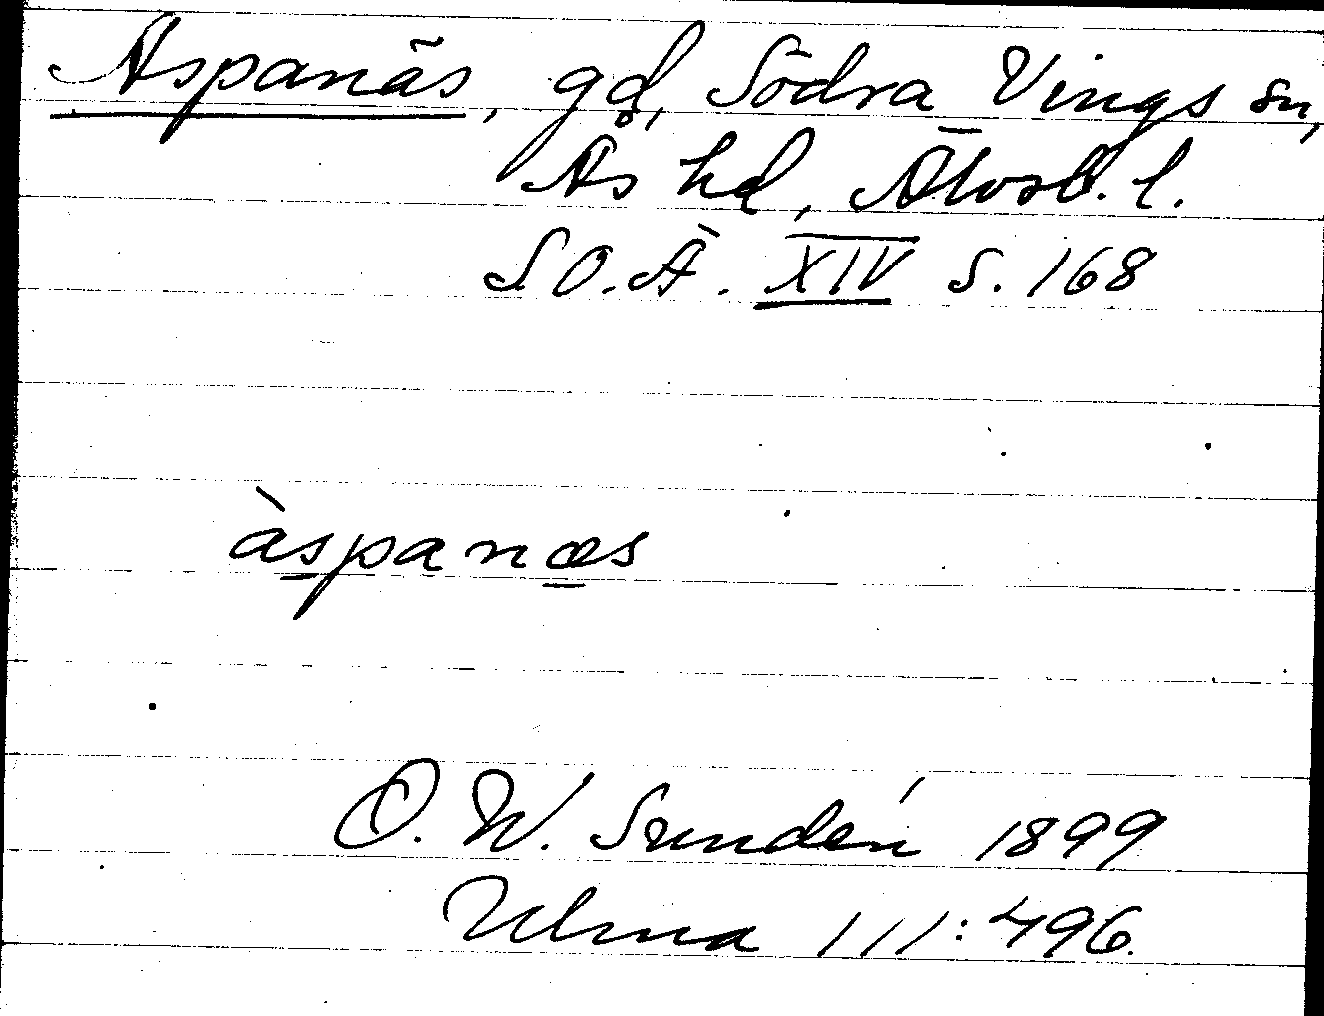 Aspanäs, gd, Södra Vings sn,
Ås hd, Älvsb. l.
S O. Ä. XIV s. 168
àspanæs
O. W. Sundén 1899
Ulma 111:496.